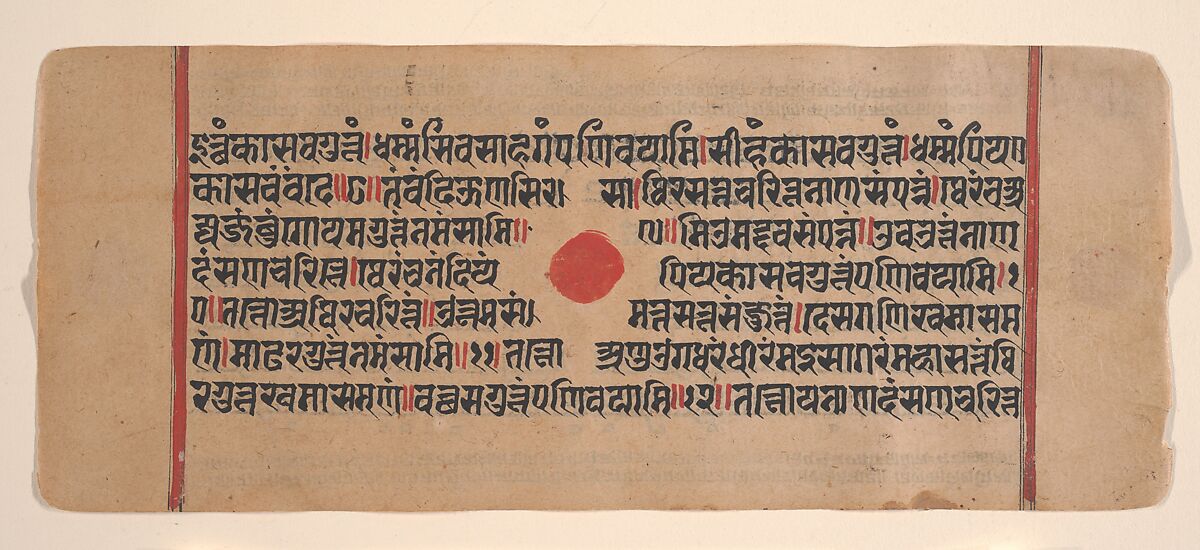 हत्थंकासवगुत्तं।धम्मंसिवसाहगंपणिवयामि।सीहंकासवगुत्तं।धम्मंपियणा
कासवंवंदे॥७॥तंवंदिऊणसिरसा।थिरसत्तचरित्तनाणसंपन्नं।थेरंचअ
ज्जजंबुंगोयमगुत्तंनमंसामि॥८॥मिउमद्दवसंपन्नं॥उवउत्तंनाण
दंसणचरित्ते।थेरंचनंदियंपियकासवगुत्तंपणिवयामि।१
०॥तत्तोअथिरचरित्तं॥उत्तमसंमत्तसत्तसंजुत्तं।देसगणिखमासम
णं।माढरगुत्तंनमंसामि॥११॥तत्तोअणुउगधरंधीरंमइसागरंमहासत्तंथि
रगुत्तखमासमणं॥वच्छसगुत्तंपणिवयामि॥१२॥तत्तोयनाणदंसणचरित्त